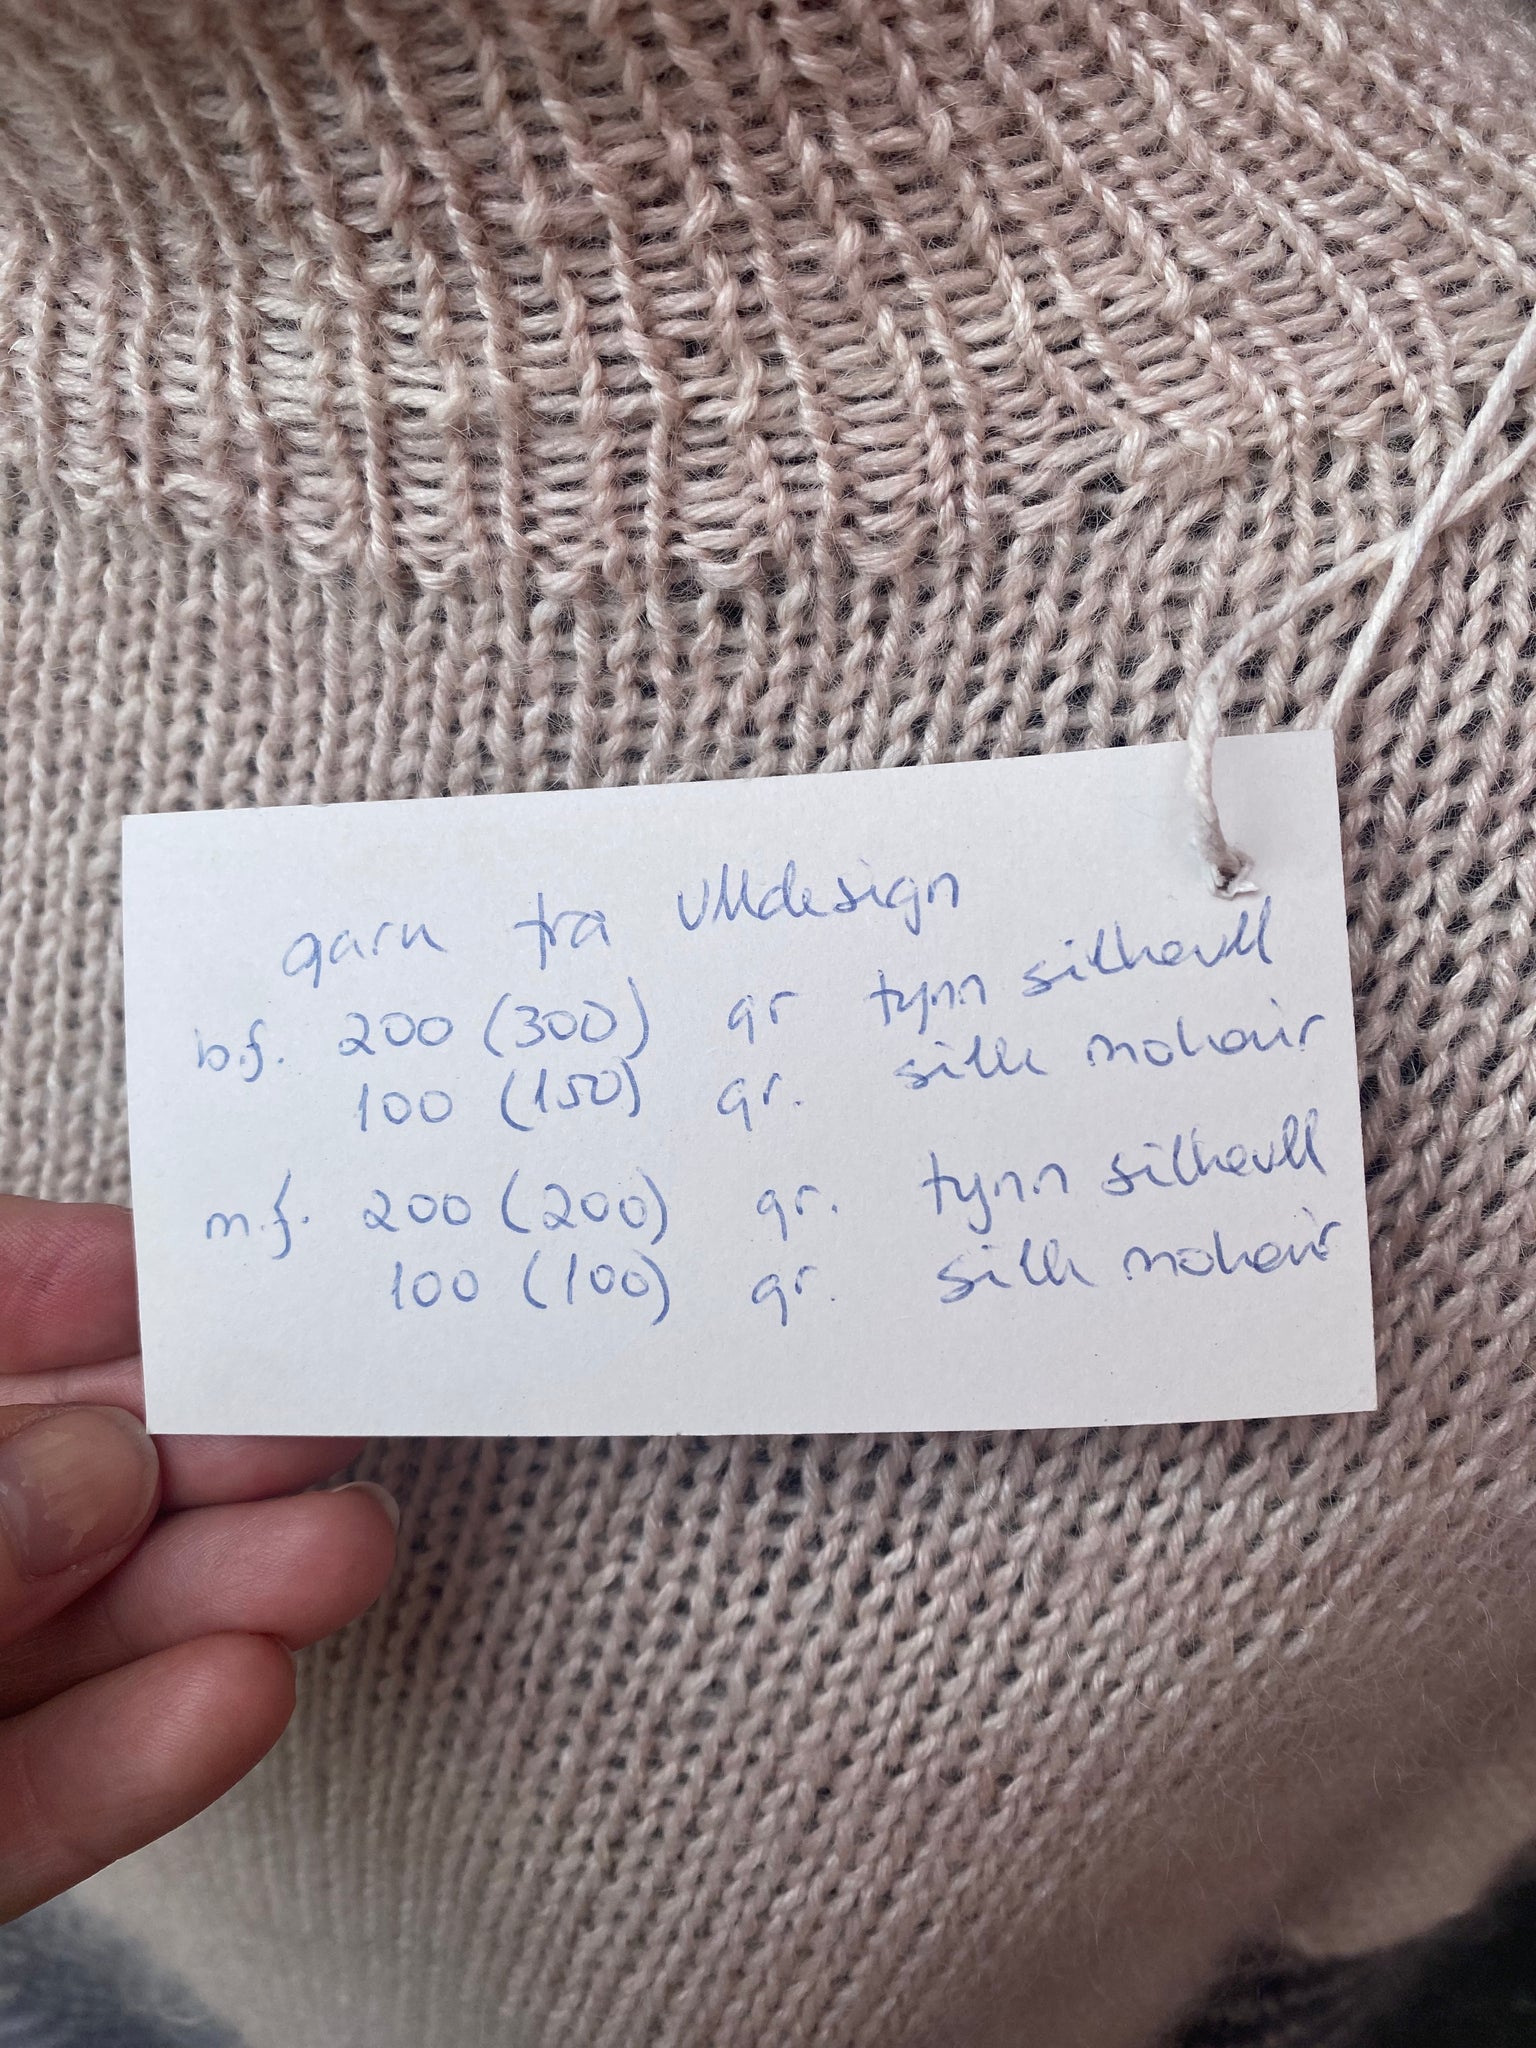 garn fra Ulldesign
b.f. 200 (300) gr tynn silkeull
100 (150) gr. silk mohair
m.f. 200 (200) gr. tynn silkeull
100 (100) gr. silk mohair